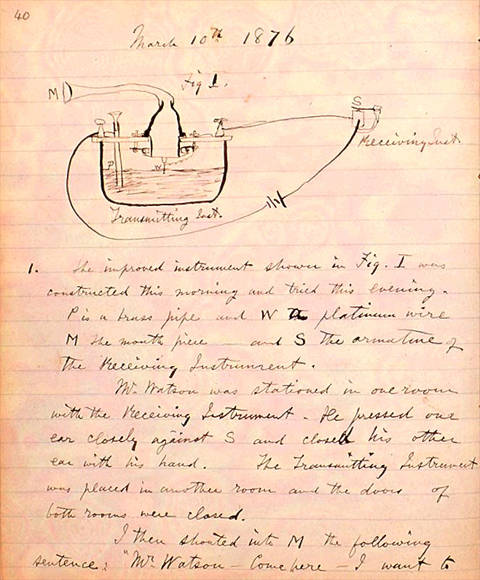 40
March 10th 1876
Fig 1.
M
S
Receiving Inst.
P
W
Transmitting Inst.
1. The improved instrument shown in Fig. I was
constructed this morning and tried this evening.
P is a brass pipe and W the platinum wire
M the mouth piece and S the armature of
the Receiving Instrument.
Mr. Watson was stationed in one room
with the Receiving Instrument. He pressed one
ear closely against S and closed his other
ear with his hand. The Transmitting Instrument
was placed in another room and the doors of
both rooms were closed.
I then shouted into M the following
sentence: "Mr. Watson – Come here – I want to